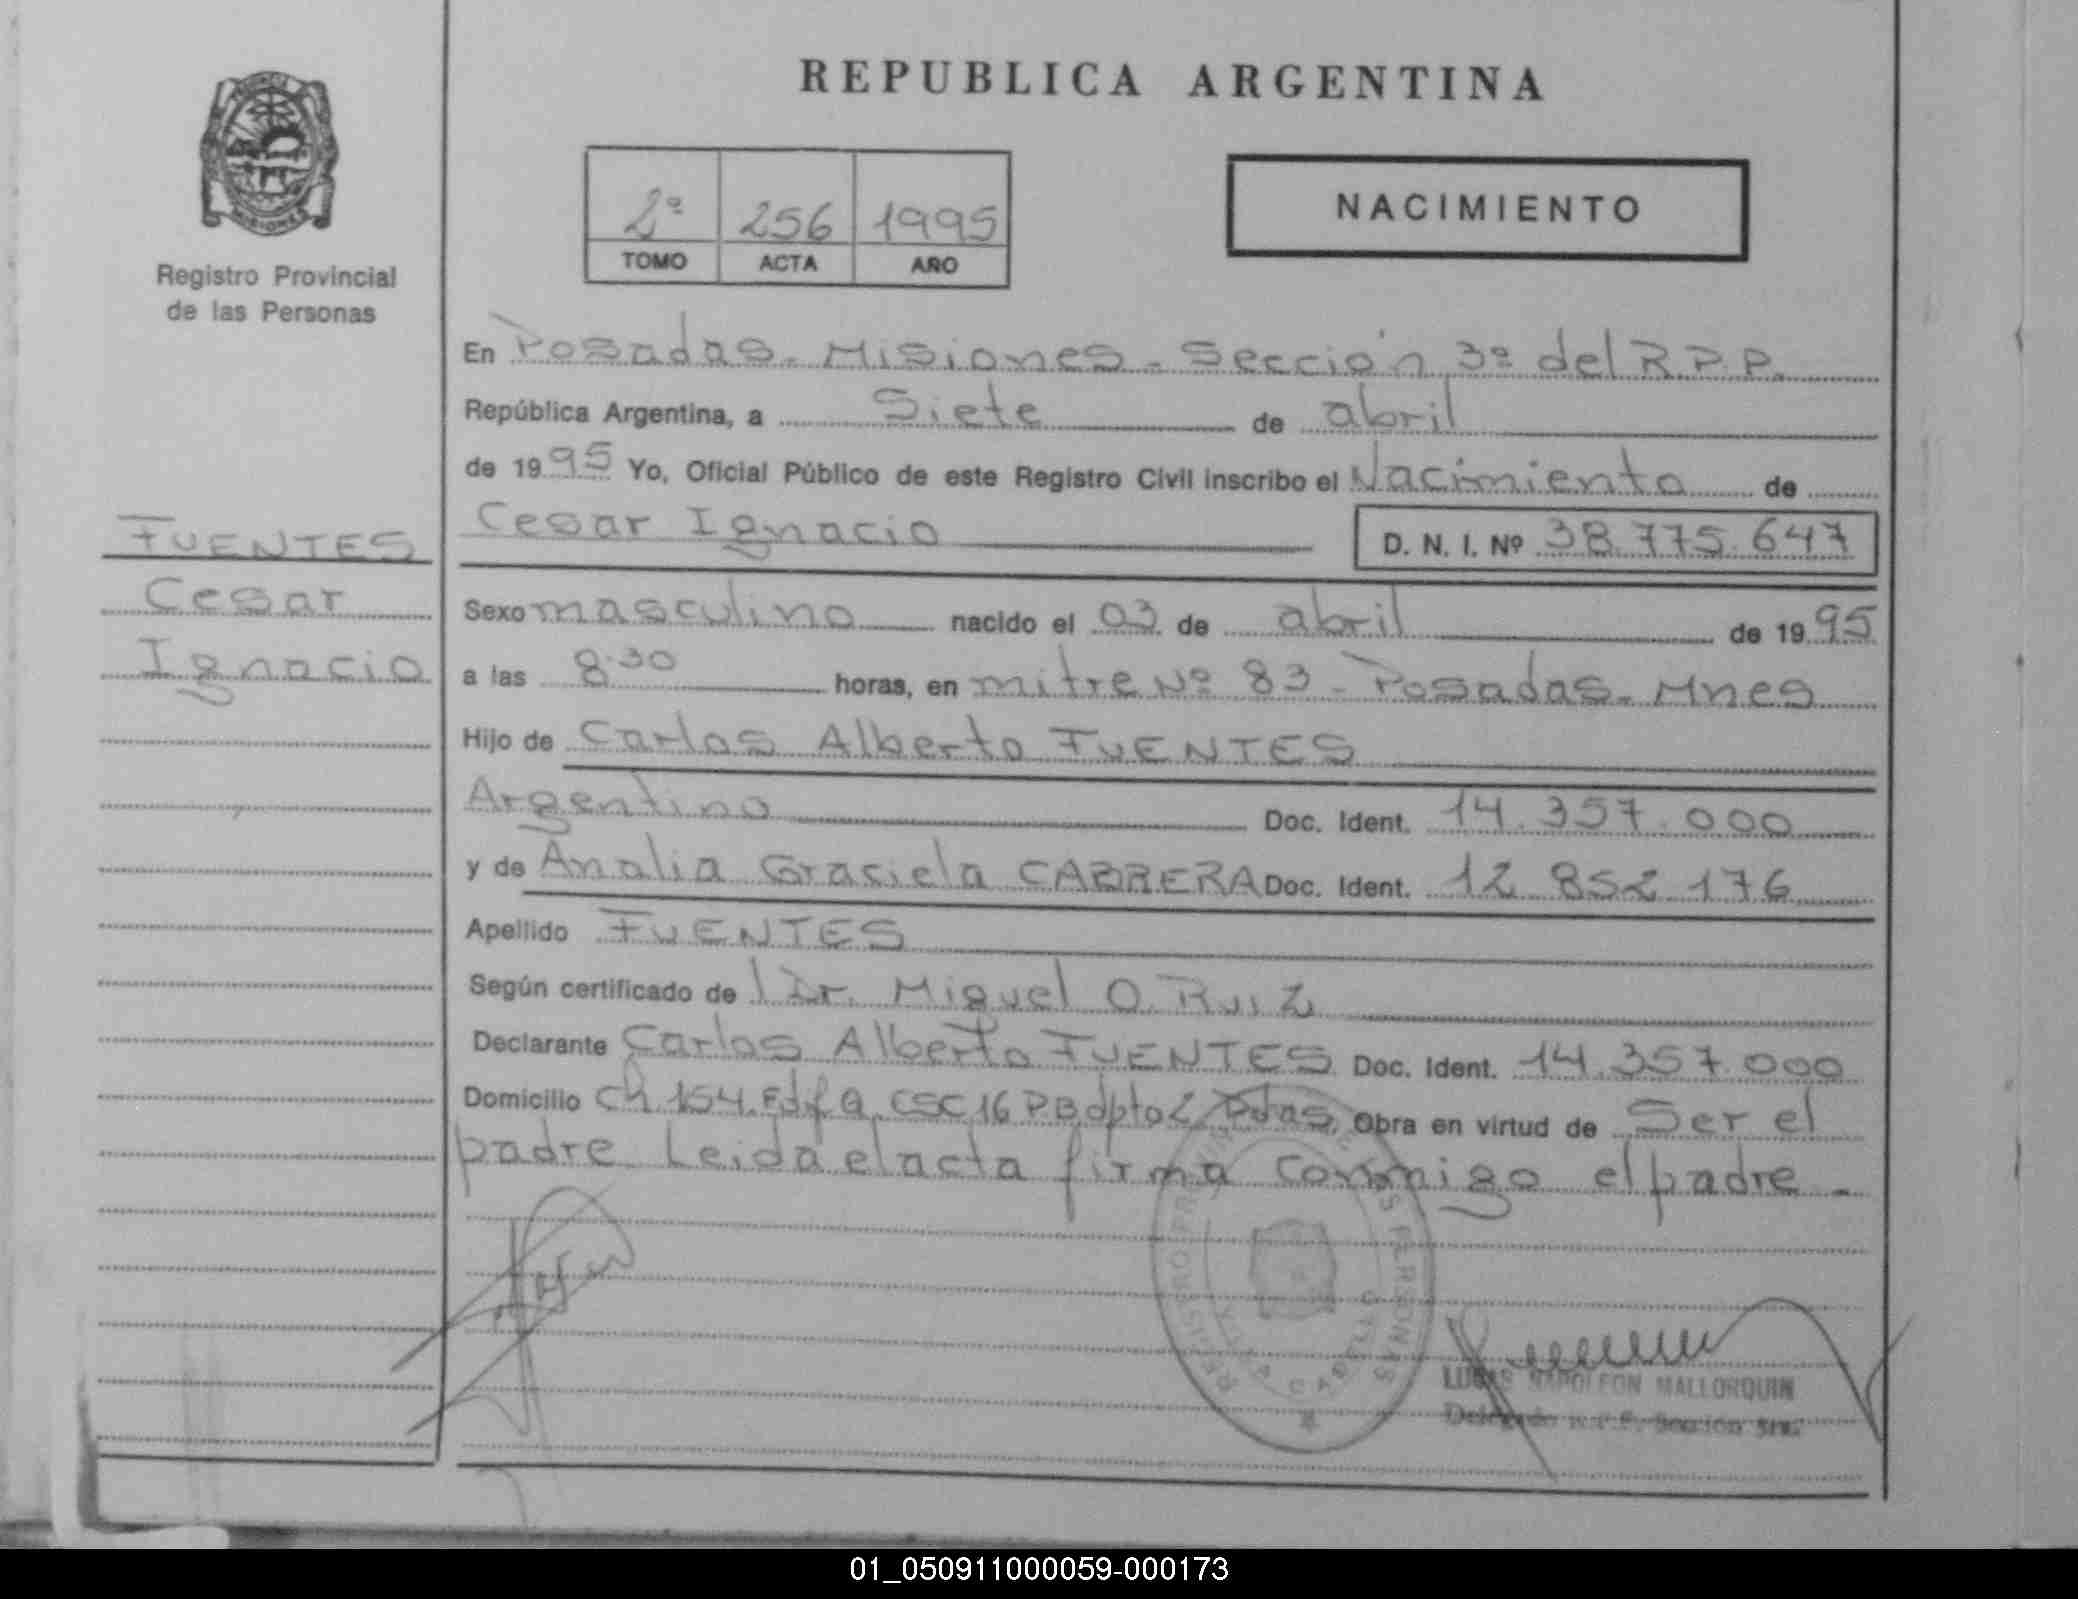 REPUBLICA ARGENTINA
MISIONES
Registro Provincial
de las Personas
2º 256 1995
TOMO ACTA AÑO
NACIMIENTO
En Posadas - Misiones - Sección 3º del R.P.P.
República Argentina, a Siete de abril
de 1995 Yo, Oficial Público de este Registro Civil inscribo el Nacimiento de
Cesar Ignacio D. N. I. Nº 38.775.647
FUENTES
Cesar
Ignacio
Sexo masculino nacido el 03 de abril de 1995
a las 8.30 horas, en mitre Nº 83 - Posadas - Mnes
Hijo de Carlos Alberto FUENTES
Argentino Doc. Ident. 14.357.000
y de Analia Graciela CABRERA Doc. Ident. 12 852 176
Apellido FUENTES
Según certificado de l Dr. Miguel O. Ruiz
Declarante Carlos Alberto FUENTES Doc. Ident. 14.357.000
Domicilio Ch 154 Edf 9 CSC16 P.B dpto 2 Pdas. Obra en virtud de Ser el
padre Leida el acta firma conmigo el padre -
REGISTRO PROVIN DE S PERSONAS
LUCAS NAPOLEON MALLORQUIN
Delegado R.P.P. Sección 3ra.
01_050911000059-000173